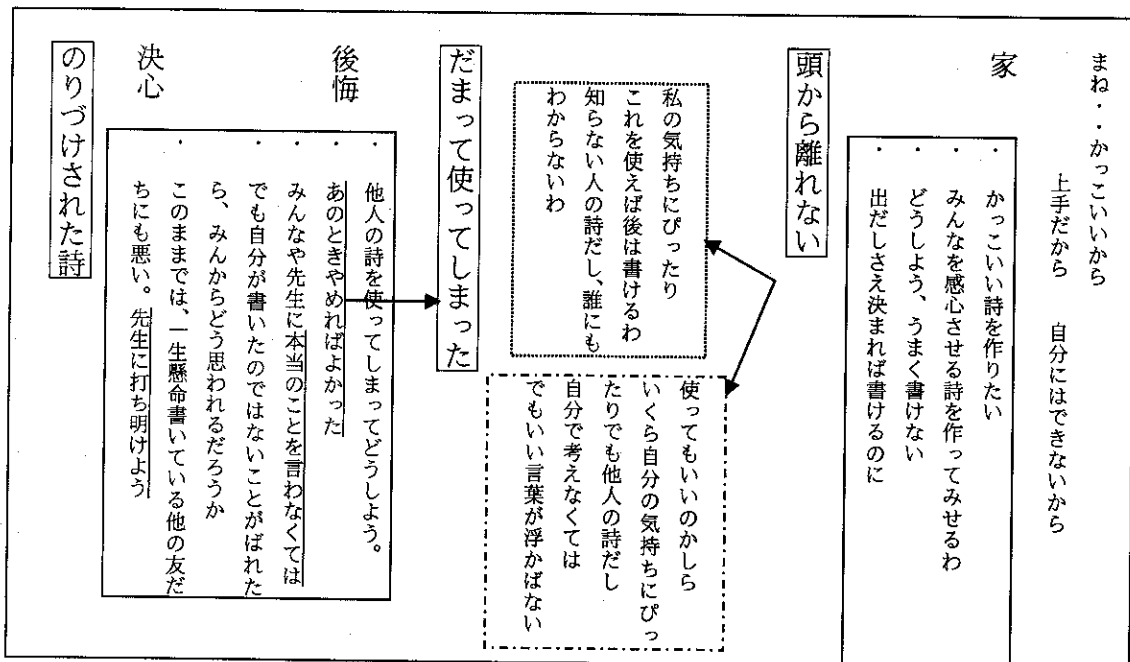 まね・・かっこいいから
上手だから 自分にはできないから
家
・かっこいい詩を作りたい
・みんなを感心させる詩を作ってみせるわ
・どうしよう、うまく書けない
・出だしさえ決まれば書けるのに
頭から離れない
私の気持ちにぴったり
これを使えば後は書けるわ
知らない人の詩だし、誰にも
わからないわ
使ってもいいのかしら
いくら自分の気持ちにぴっ
たりでも他人の詩だし
自分で考えなくては
でもいい言葉が浮かばない
だまって使ってしまった
後悔
・他人の詩を使ってしまってどうしよう。
・あのときやめればよかった
・みんなや先生に本当のことを言わなくては
・でも自分が書いたのではないことがばれた
ら、みんからどう思われるだろうか
決心
・このままでは、一生懸命書いている他の友だ
ちにも悪い。先生に打ち明けよう
のりづけされた詩